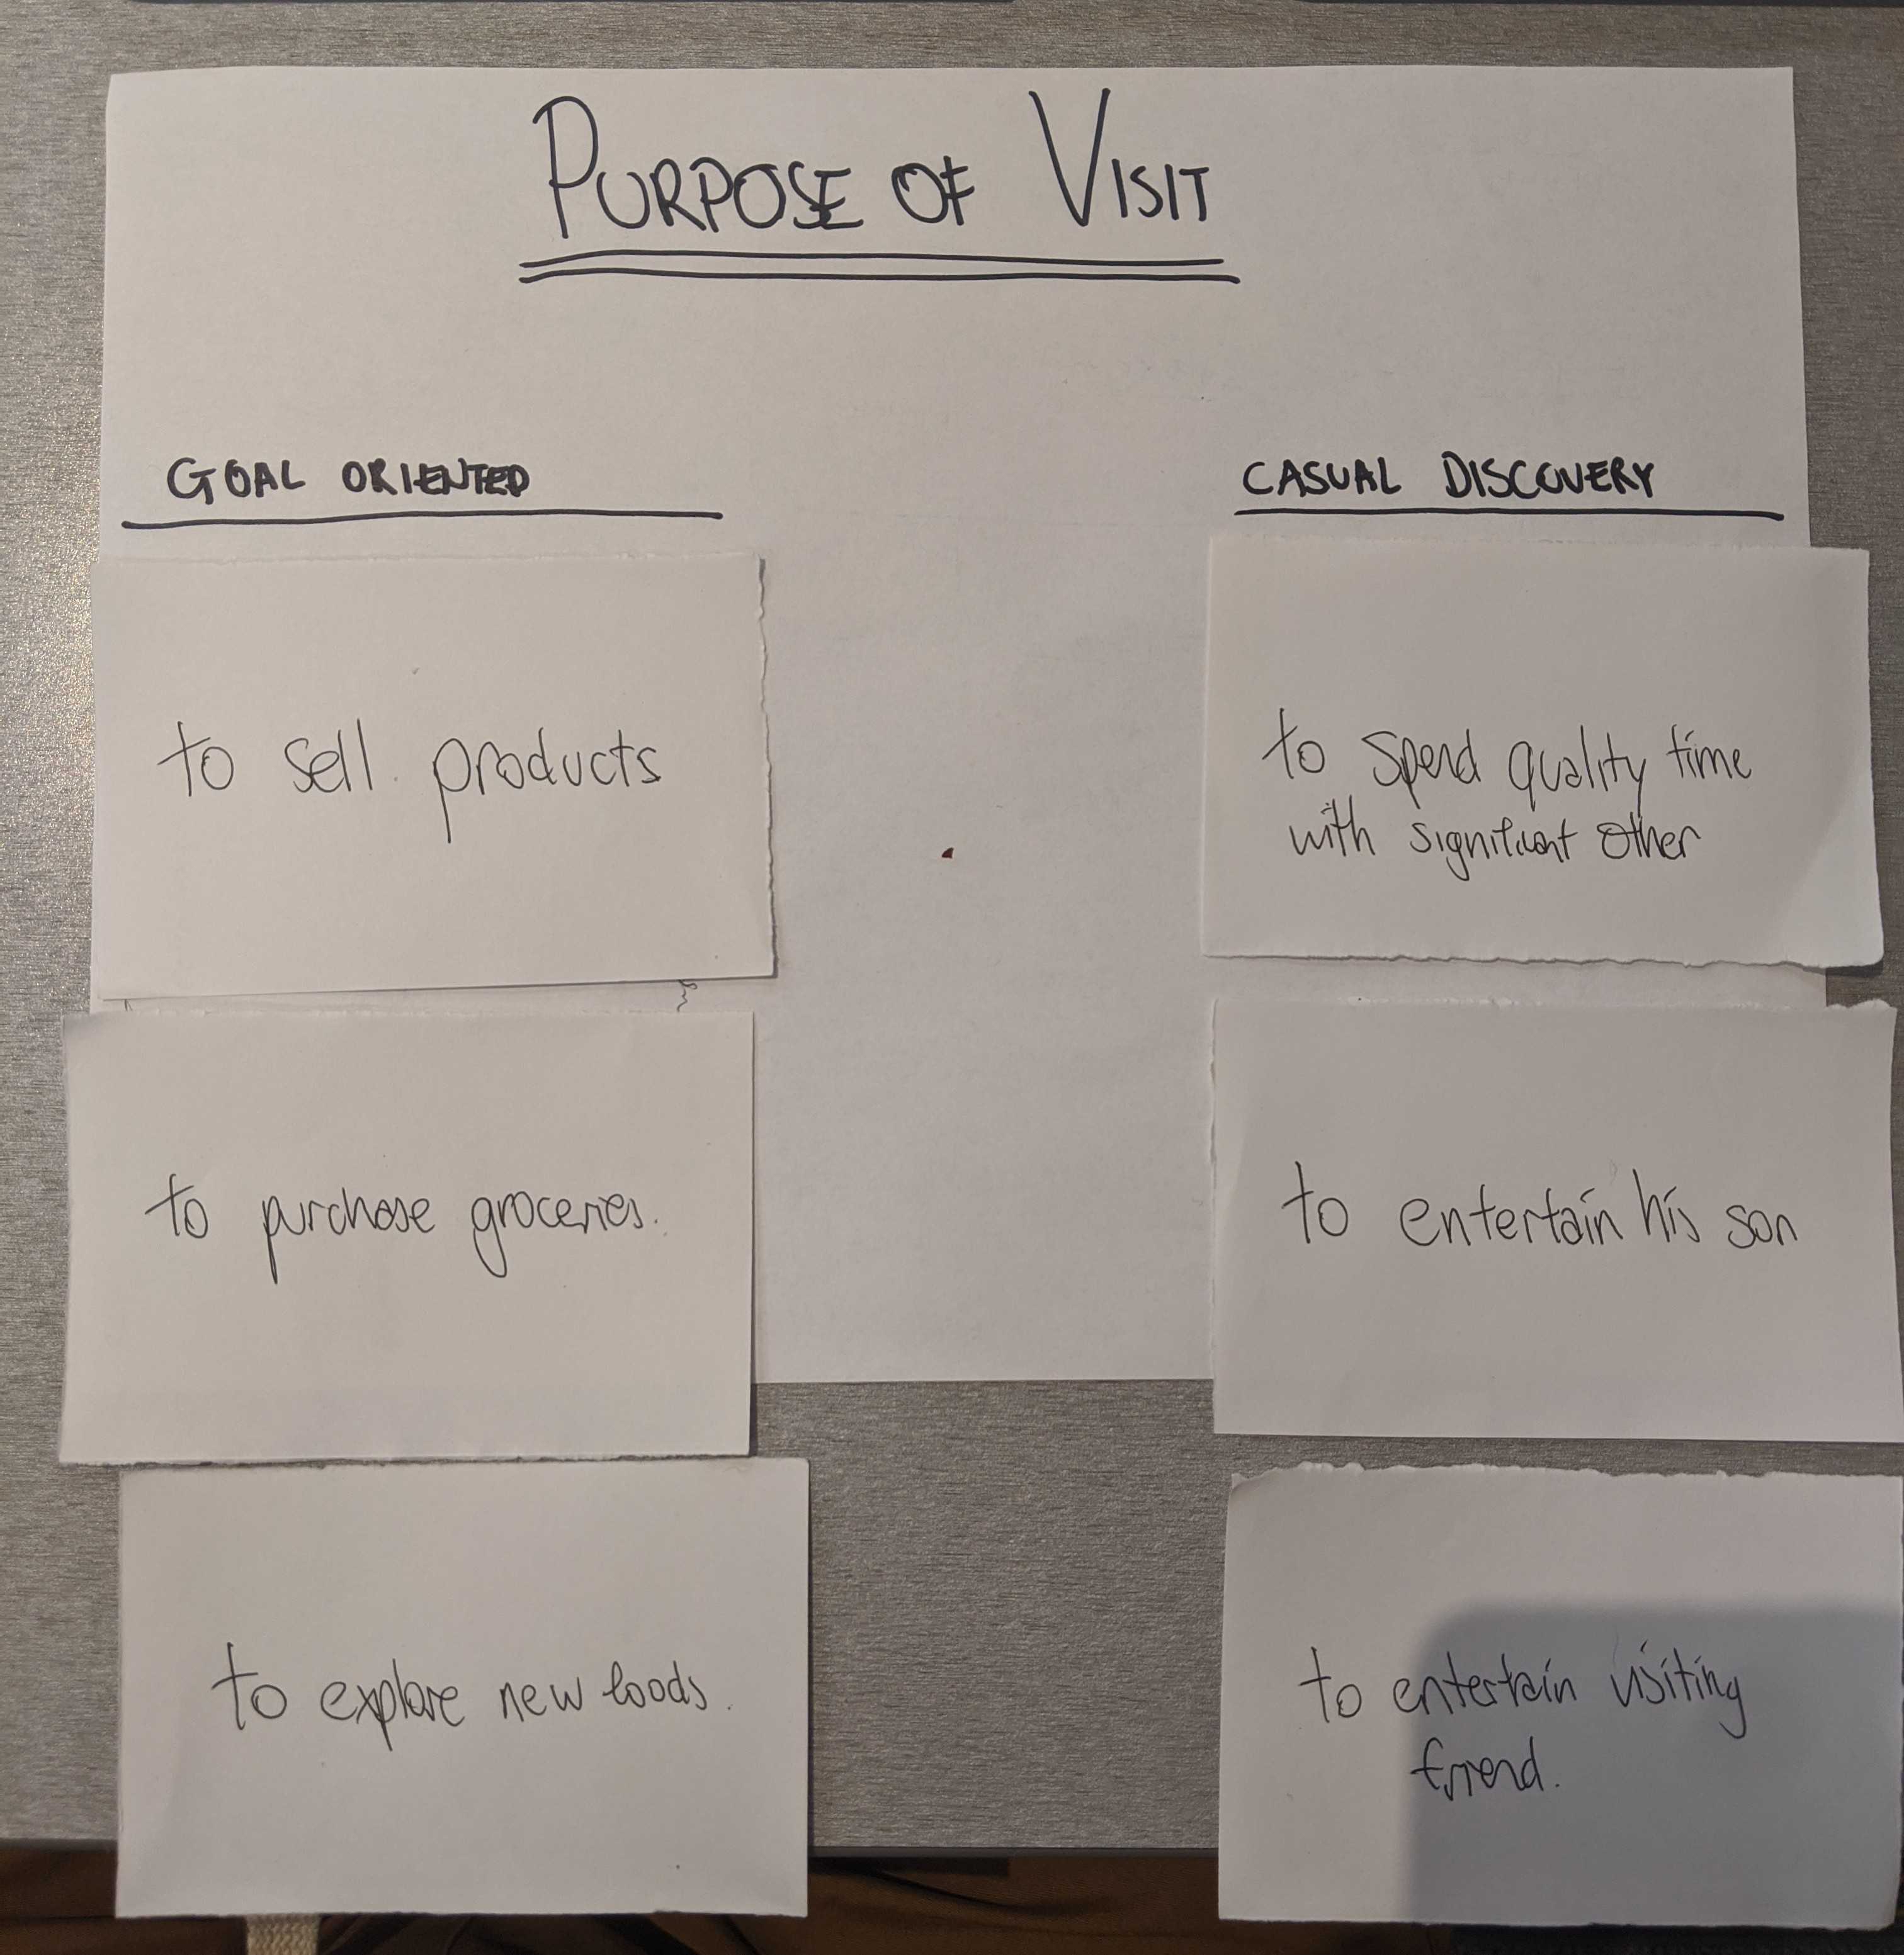 PURPOSE OF VISIT
GOAL ORIENTED
to sell products
to purchase groceries.
to explore new foods.
CASUAL DISCOVERY
to spend quality time
with significant other
to entertain his son
to entertain visiting
friend.